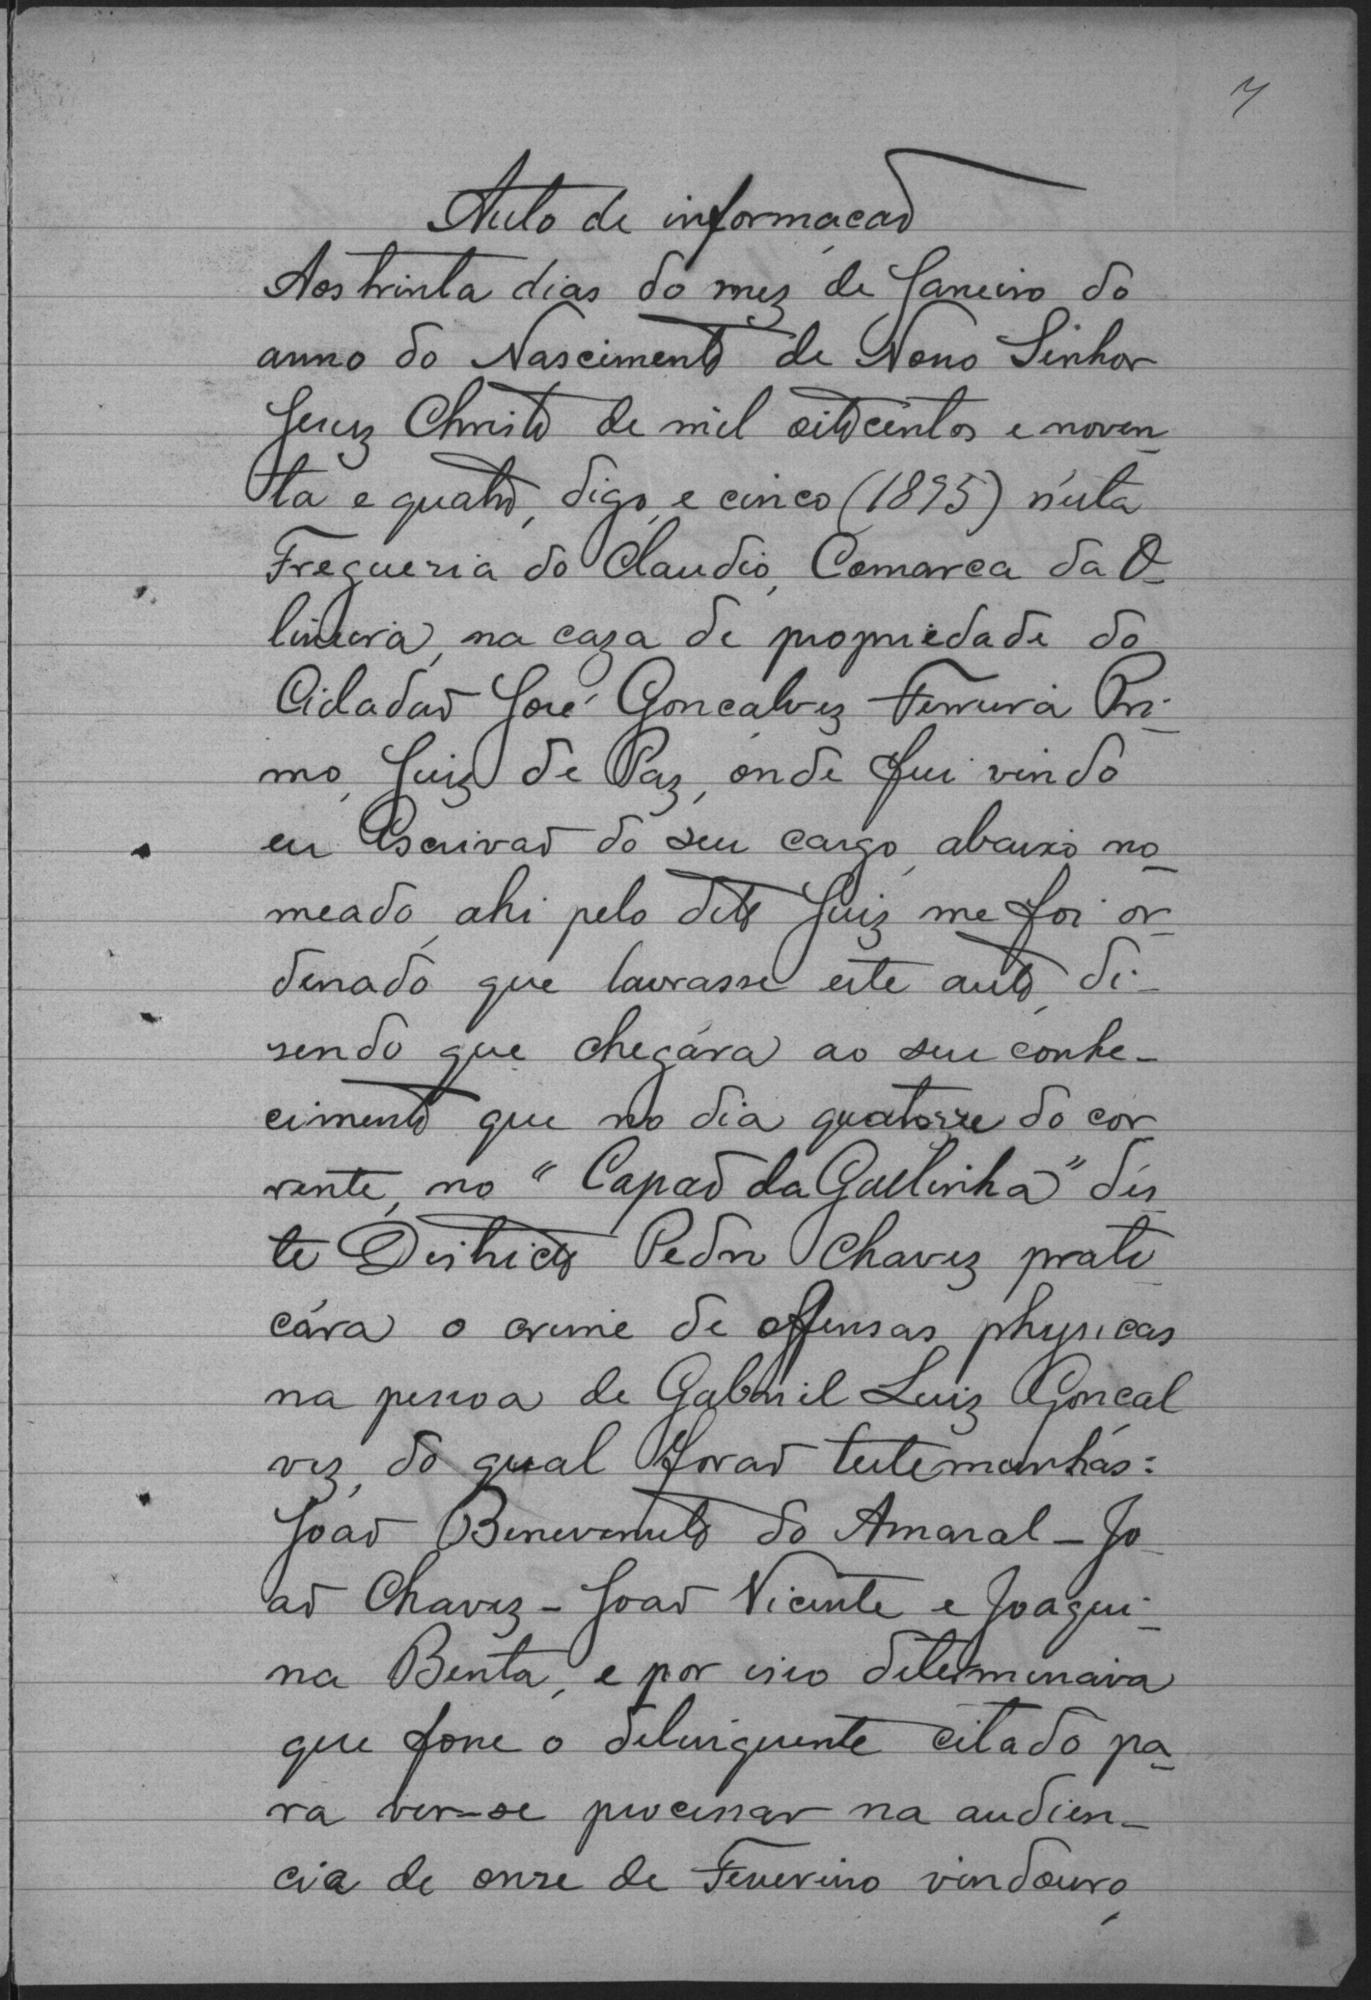 7
Auto de informação
Aos trinta dias do mez de Janeiro do
anno do Nascimento de Nosso Senhor
Jesuz Christo de mil oitocentos e noven-
ta e quatro, digo, e cinco (1895) n'esta
Freguezia do Claudio, Comarca da O-
liveira, na caza de propriedade do
Cidadão José Gonçalvez Ferreira Pri-
mo, Juiz de Paz, onde fui vindo
eu Escrivão do seu cargo, abaixo no-
meado, ahi pelo dito Juiz me foi or-
denado que lavrasse este auto, di-
zendo que chegára ao seu conhe-
cimento que no dia quatorze do cor
rente, no "Capão da Gallinha" des
te Districto Pedro Chavez prati
cára o crime de offensas physicas
na pessoa de Gabriel Luiz Gonçal
vez, do qual forão testemunhas:
João Benevenuto do Amaral - Jo
ão Chavez - João Vicente e Joaqui-
na Benta, e por isso determinava
que fosse o delinquente citado pa-
ra ver-se processar na audien-
cia de onze de Fevereiro vindouro,